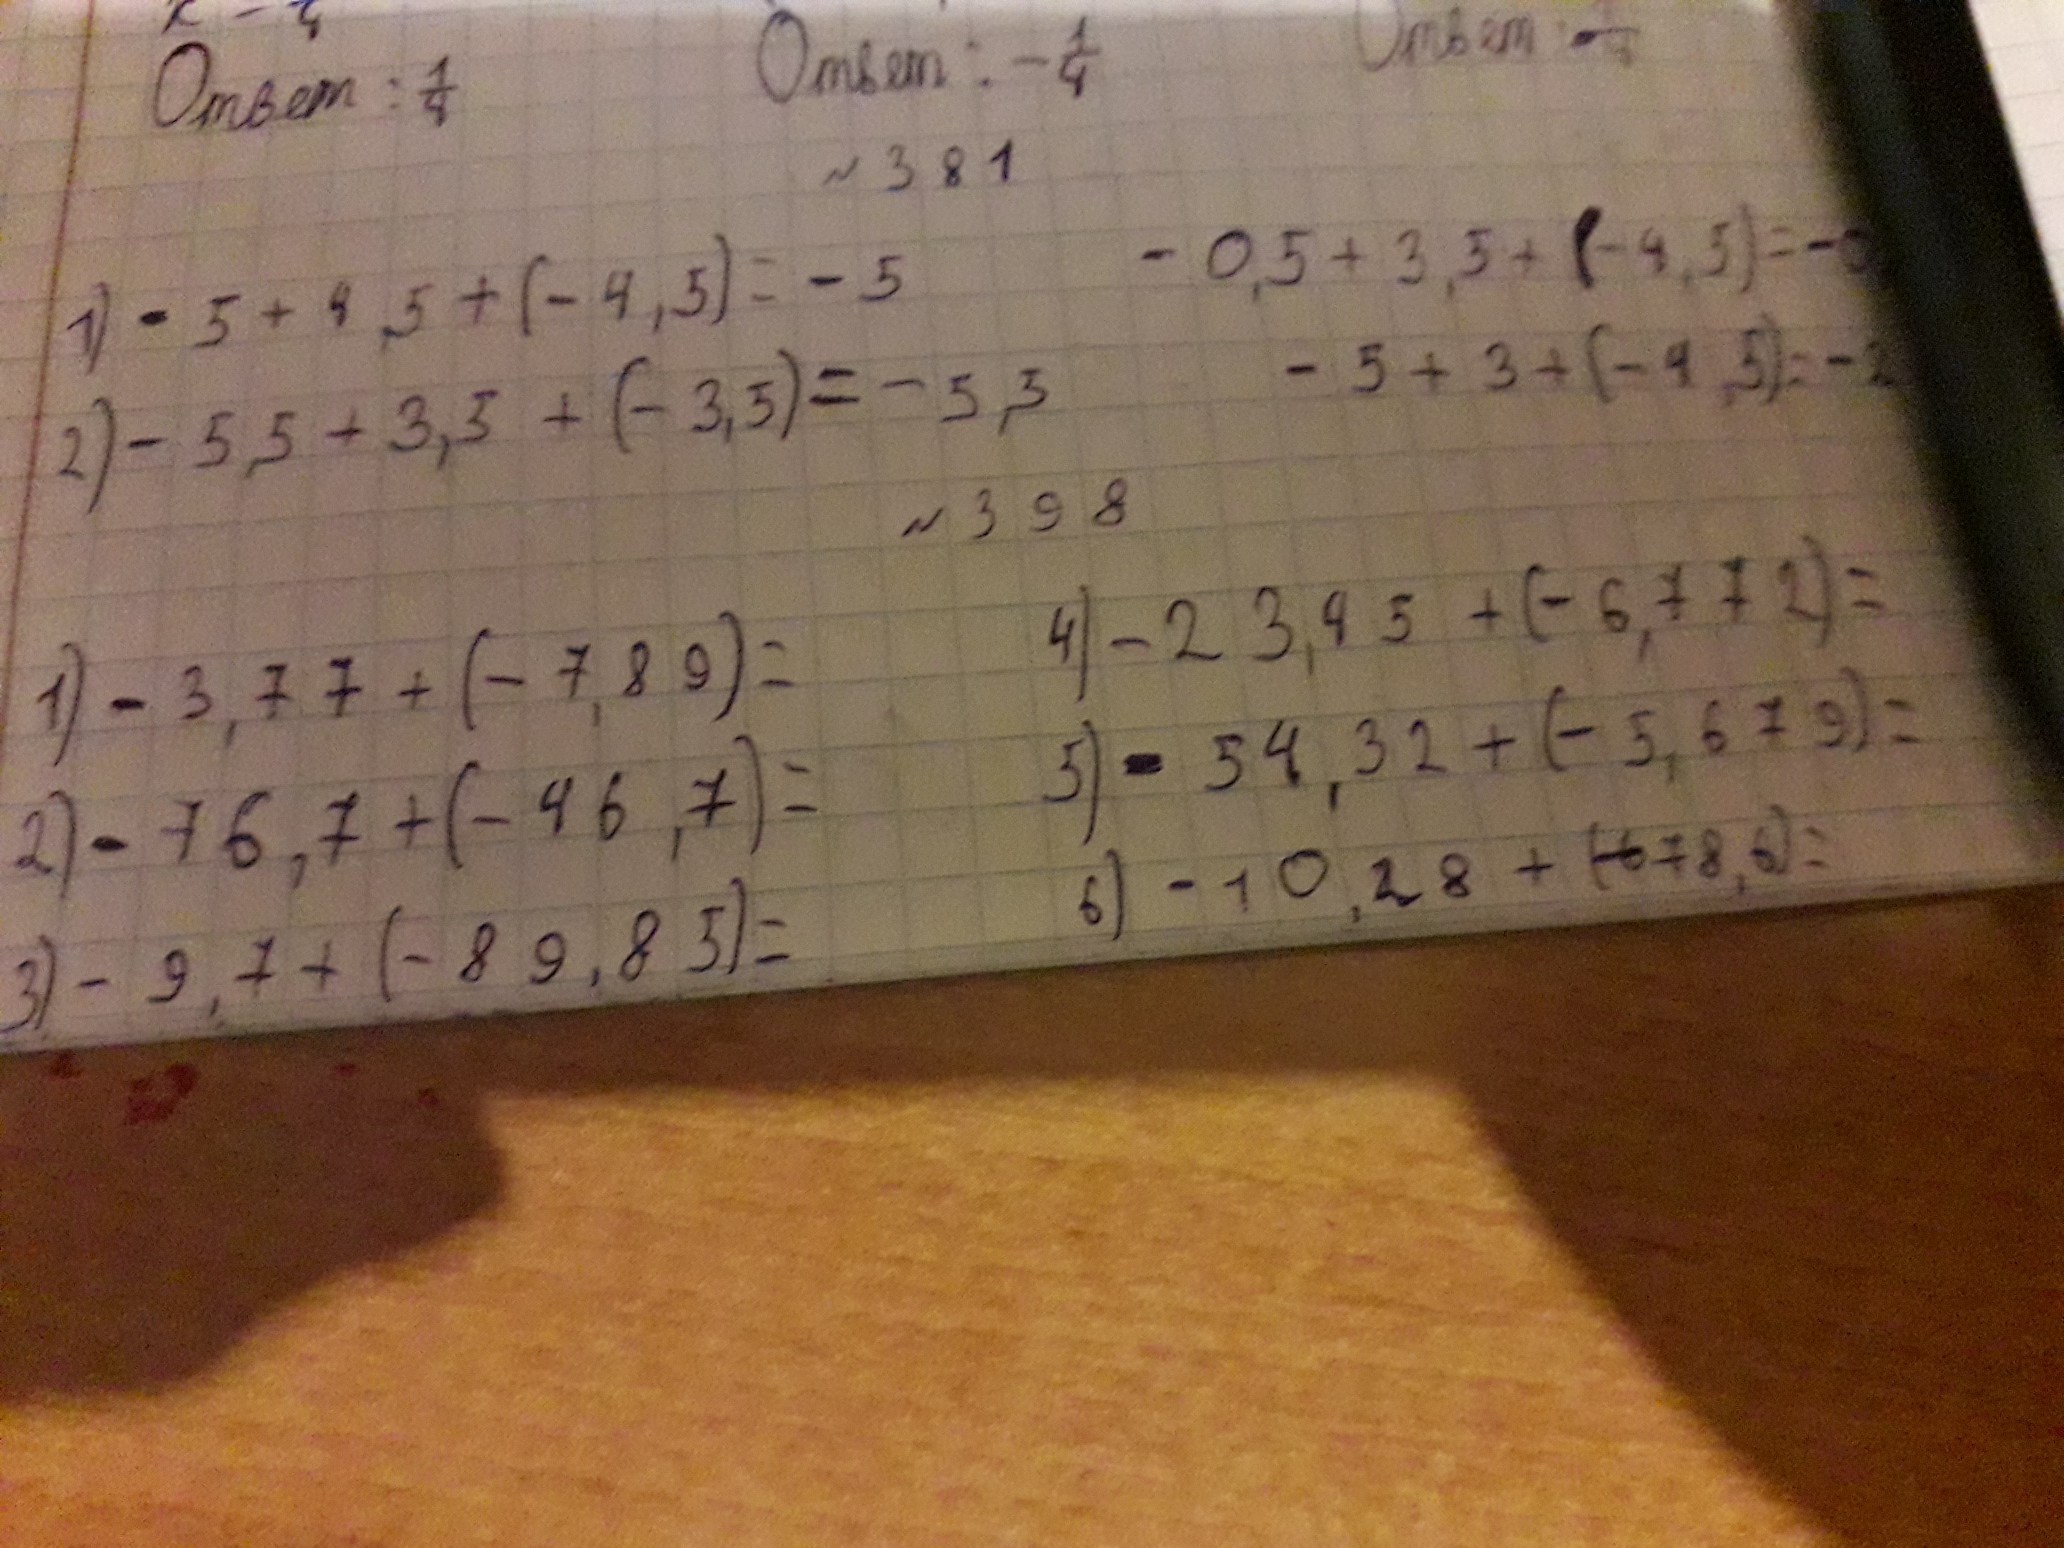 Ответ: 1/4 Ответ: -1/4 Ответ:
~ 381
1) - 5 + 4,5 + (- 4,5) = - 5 - 0,5 + 3,5 + (- 4,5) = -
2) - 5,5 + 3,5 + (- 3,5) = - 5,5 - 5 + 3 + (- 4,5) = - 2
~ 398
1) - 3,77 + (- 7,89) = 4) - 23,45 + (- 6,772) =
2) - 76,7 + (- 46,7) = 5) - 54,32 + (- 5,679) =
3) - 9,7 + (- 89,85) = 6) - 10,28 + (-678,6) =